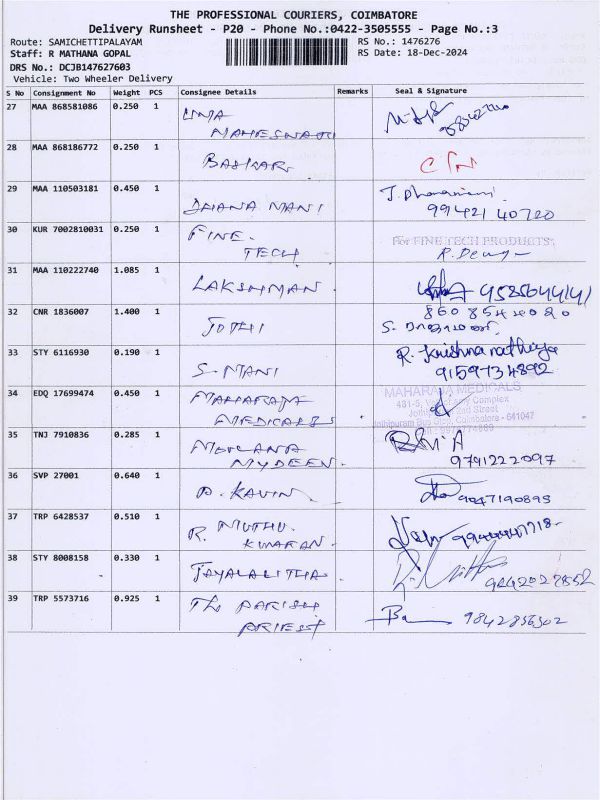 THE PROFESSIONAL COURIERS, COIMBATORE
Delivery Runsheet - P20 - Phone No.:0422-3505555 - Page No.:3
Route: SAMICHETTIPALAYAM
RS No.: 1476276
Staff: R MATHANA GOPAL
RS Date: 18-Dec-2024
DRS No.: DCJB147627603
Vehicle: Two Wheeler Delivery
S No Consignment No Weight PCS Consignee Details Remarks Seal & Signature
27 MAA 868581086 0.250 1 UMA
MAHESWARI
28 MAA 868186772 0.250 1 BASKAR
29 MAA 110503181 0.450 1 DHANA MANI J. Dhanamani
99421 40720
30 KUR 7002810031 0.250 1 FINE
TECH
For FINE TECH PRODUCTS
31 MAA 110222740 1.085 1 LAKSHMAN 9585644141
32 CNR 1836007 1.400 1 JOTHI 860 854 2020
33 STY 6116930 0.190 1 S. MANI R. Krishna
9159734892
34 EDQ 17699474 0.450 1 MAHARAJA
MEDICALS
MAHARAJA MEDICALS
Complex
East Street
Coimbatore - 641047
35 TNJ 7910836 0.285 1 MOULANA
MYDEEN.
9791222097
36 SVP 27001 0.640 1 P. KAVIN 9047190895
37 TRP 6428537 0.510 1 R. MUTHU
KUMARAN.
38 STY 8008158 0.330 1 JAYALALITHA
39 TRP 5573716 0.925 1 The PARISH
PRIEST
9842856502